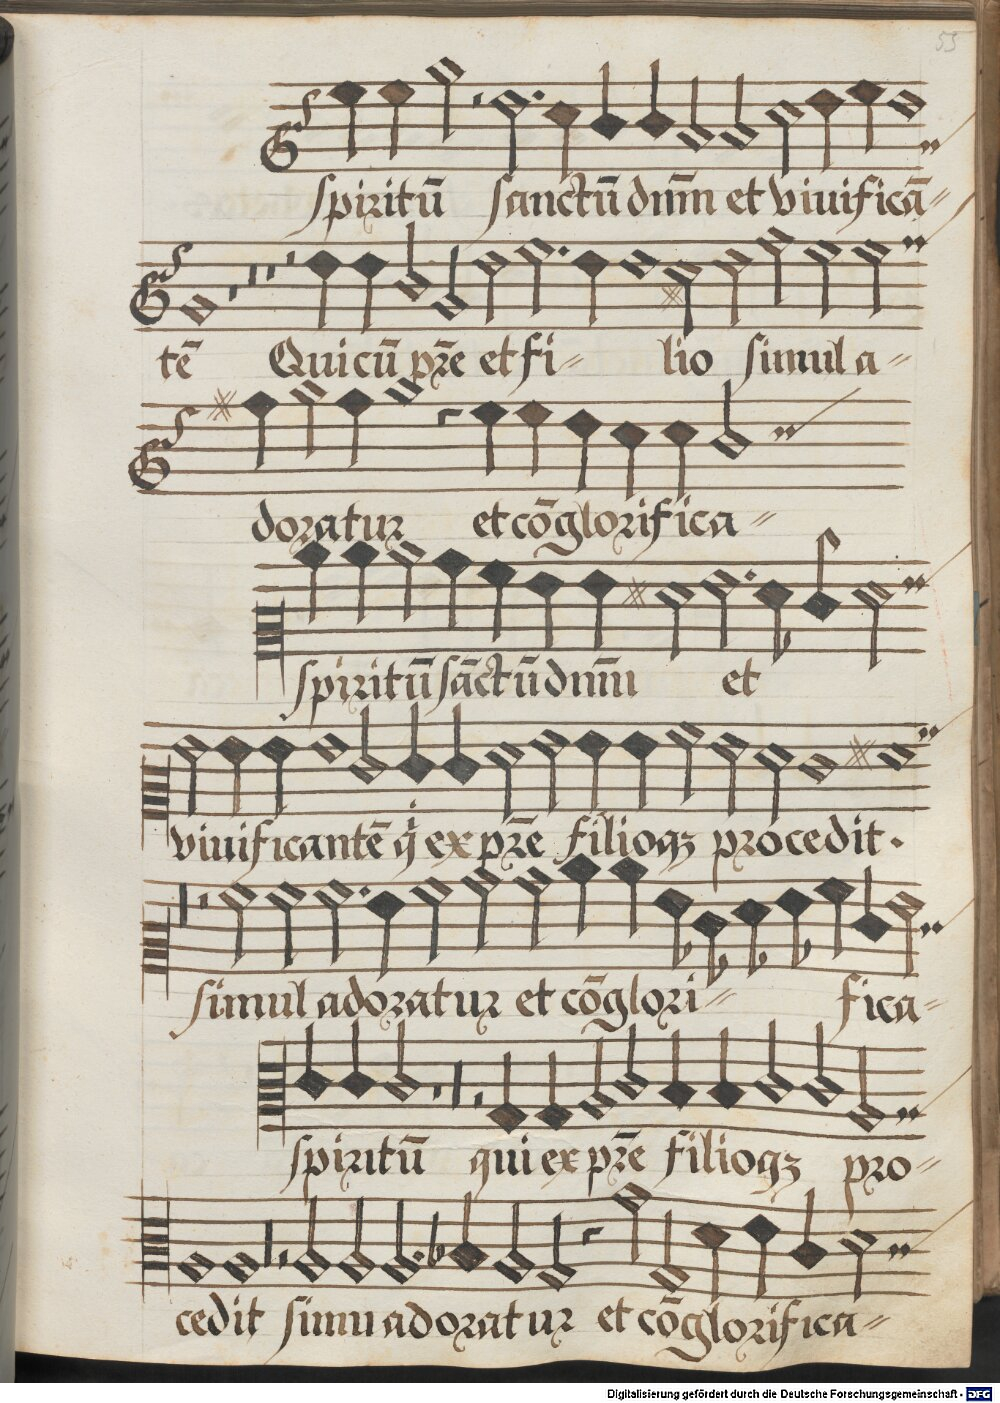 53
spiritū sanctū dnm̄ et viuificā-
tē Qui cū pr̄e et fi- lio simul a-
doratur et cōglorifica-
spiritū sāctū dnm̄ et
viuificantē q̇ ex pr̄e filioqꝫ procedit.
simul adoratur et cōglori- fica-
spiritū qui ex pr̄e filioqꝫ pro-
cedit simu adoratur et cōglorifica-
Digitalisierung gefördert durch die Deutsche Forschungsgemeinschaft - DFG